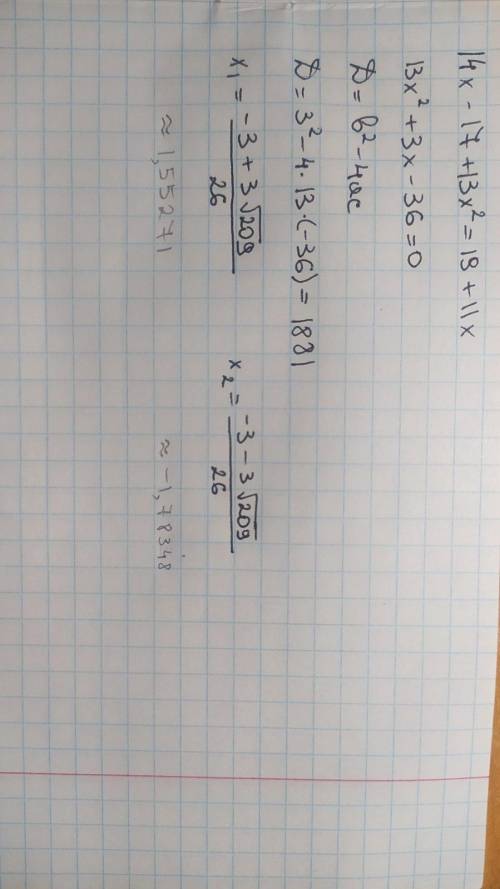 14x - 17 + 13x² = 19 + 11x
13x² + 3x - 36 = 0
D = b² - 4ac
D = 3² - 4 · 13 · (-36) = 1881
x₁ = (-3 + 3√209)/26    x₂ = (-3 - 3√209)/26
≈ 1,55271    ≈ -1,78348